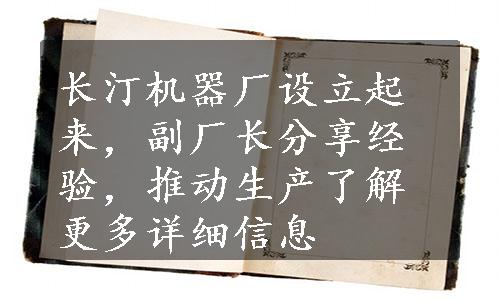 长汀机器厂设立起
来，副厂长分享经
验，推动生产了解
更多详细信息